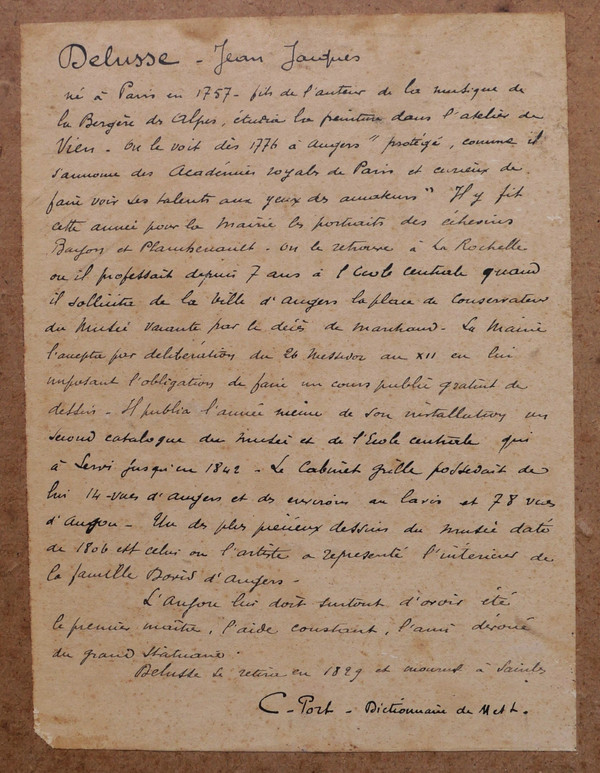 Delusse - Jean Jacques
né à Paris en 1757 - fils de l'auteur de la musique de
la Bergère des Alpes, étudia la peinture dans l'atelier de
Vien - On le voit dès 1776 à Angers " protégé, comme il
s'annonce des Académies royales de Paris et curieux de
faire voir ses talents aux yeux des amateurs" Il y fit
cette année pour la Mairie les portraits des échevins
et - On le retrouve à La Rochelle
ou il professait depuis 7 ans à l'Ecole centrale quand
il sollicite de la Ville d'Angers la place de Conservateur
du Musée vacante par le décès de Marchand - La Mairie
l'accepta par délibération du 26 Messidor an XII en lui
imposant l'obligation de faire un cours public gratuit de
dessin - Il publia l'année même de son installation un
second catalogue du musée et de l'Ecole centrale qui
à servi jusqu'en 1842 - Le Cabinet Grille possedait de
lui 14 vues d'Angers et des environs au lavis et 78 vues
d'Anjou - Un des plus précieux dessins du musée daté
de 1806 est celui ou l'artiste a représenté l'intérieur de
la famille David d'Angers -
L'Anjou lui doit surtout d'avoir été
le premier maître, l'aide constant, l'ami dévoué
du grand Statuaire.
Delusse se retira en 1829 et mourut à Saintes
C - Port - Dictionnaire de M et L.